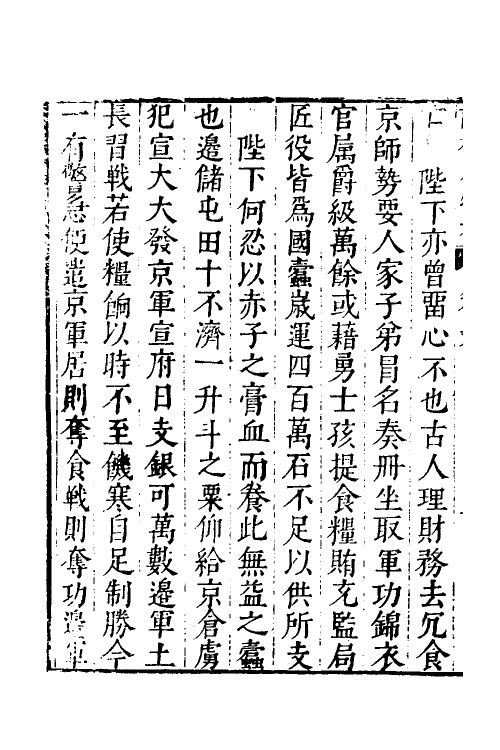 陛下亦曾畱心不也古人理財務去冗食
京師勢要人家子弟冒名奏冊坐取軍功錦衣
官属爵級萬餘或藉勇士孩提食糧賄充監局
匠役皆爲國蠧嵗運四百萬石不足以供所支
陛下何忍以赤子之膏血而養此無益之蠧
也邊儲屯田十不濟一升斗之粟仰給京倉虜
犯宣大大發京軍宣府日支銀可萬數邊軍土
長習戰若使糧餉以時不至饑寒自足制勝今
一有警急便遣京軍居則奪食戰則奪功邊軍